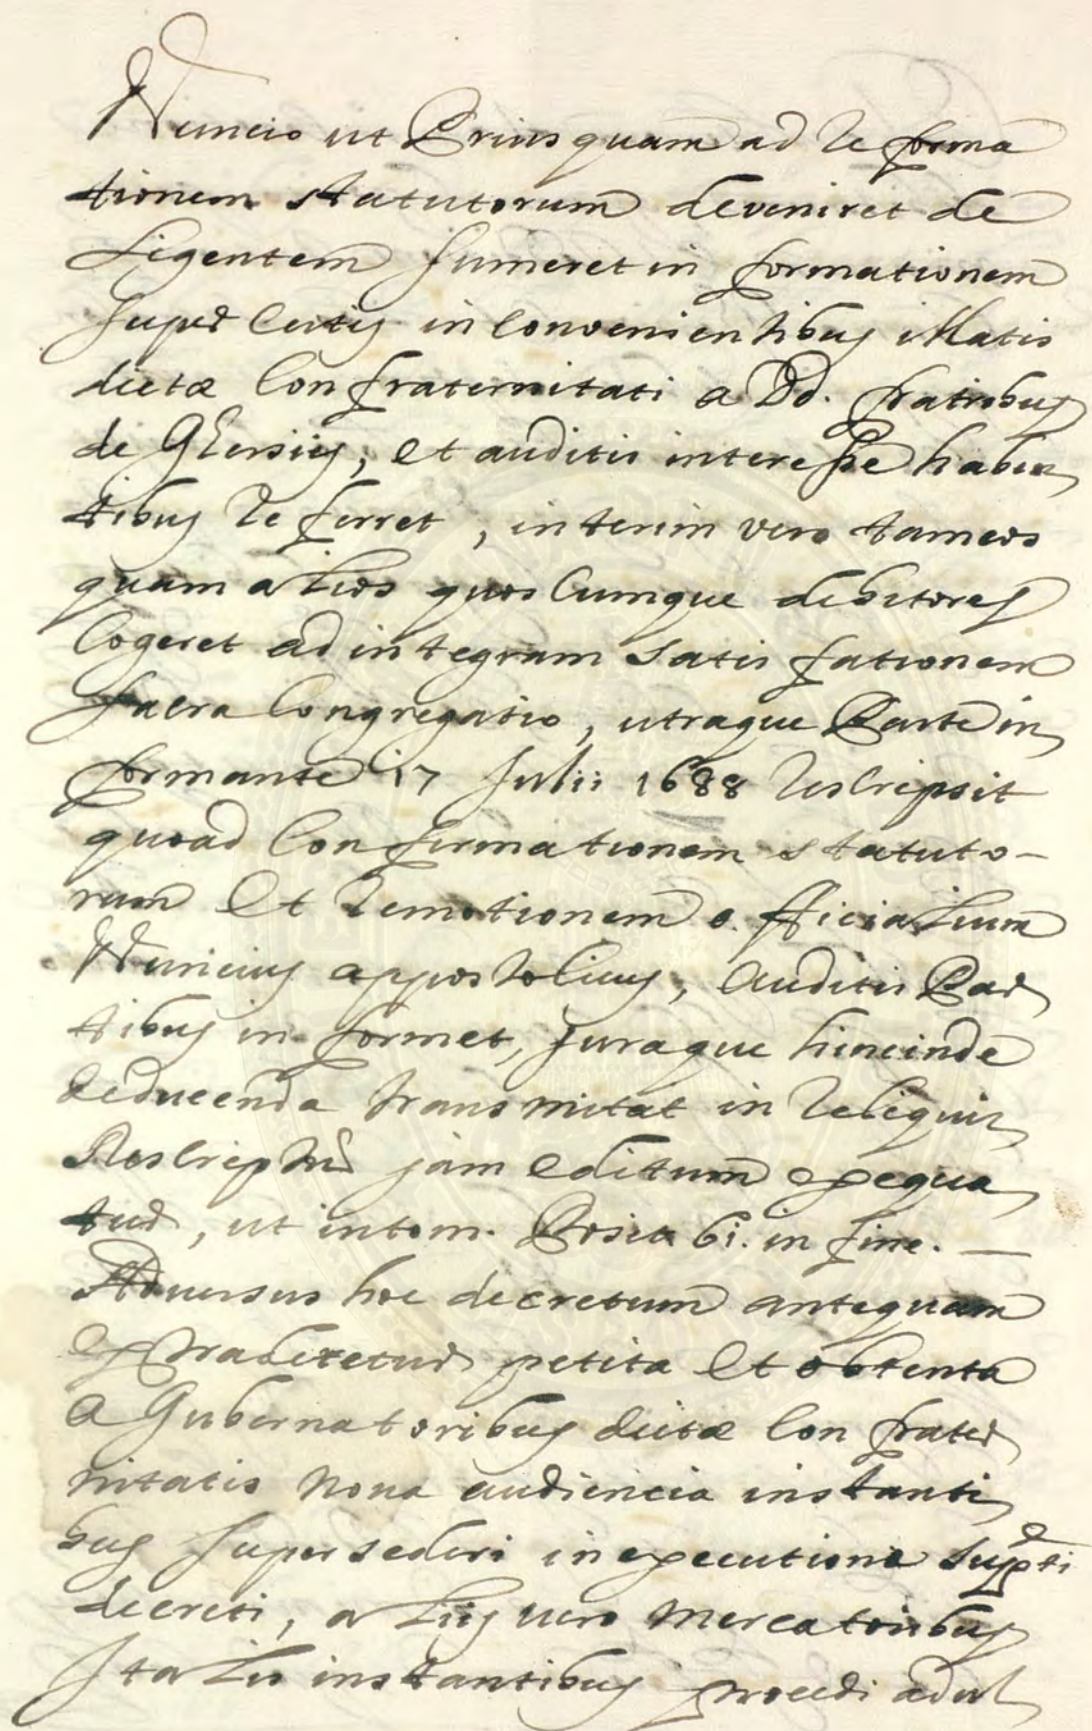 Nuncio ut Priusquam ad Reforma
tionem statutorum deveniret de
ligentem sumeret in formationem
super certis in convenientibus illatis
dictæ Confraternitati a Dd. fratribus
de Ghersiis, et auditis interesse haben
tibus Referret, interim vero tam eos
quam alios quoscumque debitores
Cogeret ad integram satis fationem
sacra Congregatio, utraque Parte in
formante 17 Julii 1688 Rescripsit
quoad Confirmationem statuto-
rum Et Remotionem officialium
Nuncius appostolicus, Auditis Par
tibus in formet, juraque hincinde
deducenda transmitat in Reliquis
Rescriptum jam editum exequa
tur, ut in tom. Posit. 61. in fine. —
Adversus hoc decretum antequam
extraderetur petita Et obtenta
a Gubernatoribus dictæ Confrater
nitatis nova audiencia instanti
bus supersederi in executione supti
decreti, aliis vero mercatoribus
Italis instantibus procedi ad ul